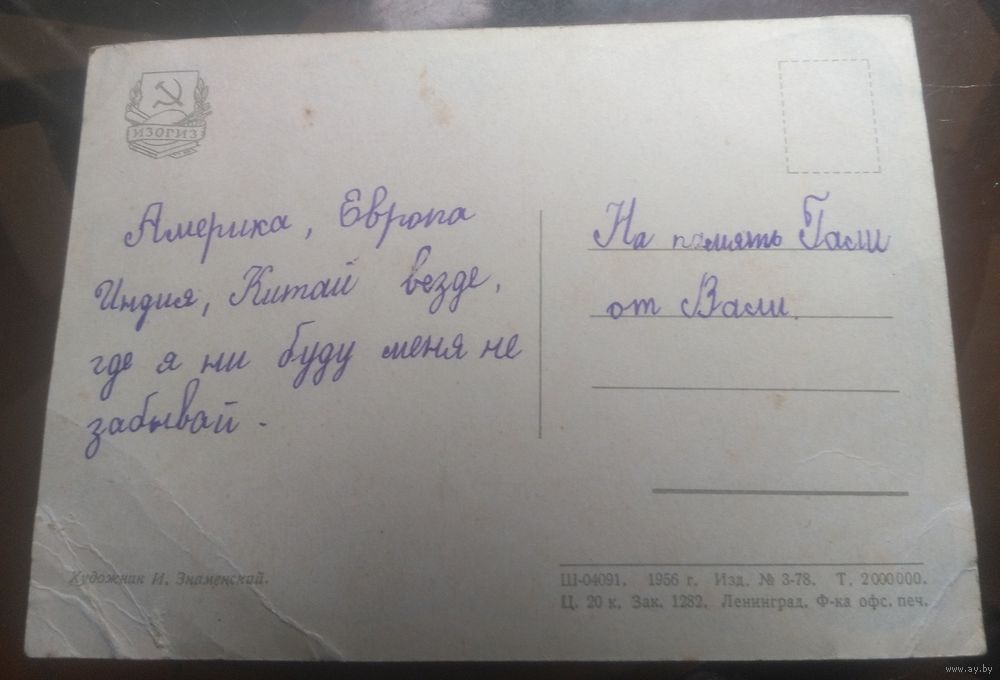 ИЗОГИЗ
Америка, Европа
Индия, Китай везде,
где я ни буду меня не
забывай.
На память Гали
от Вали.
Художник И. Знаменский.
Ш-04091. 1956 г. Изд. № 3-78. Т. 2000000.
Ц. 20 к. Зак. 1282. Ленинград. Ф-ка офс. печ.
www.ay.by